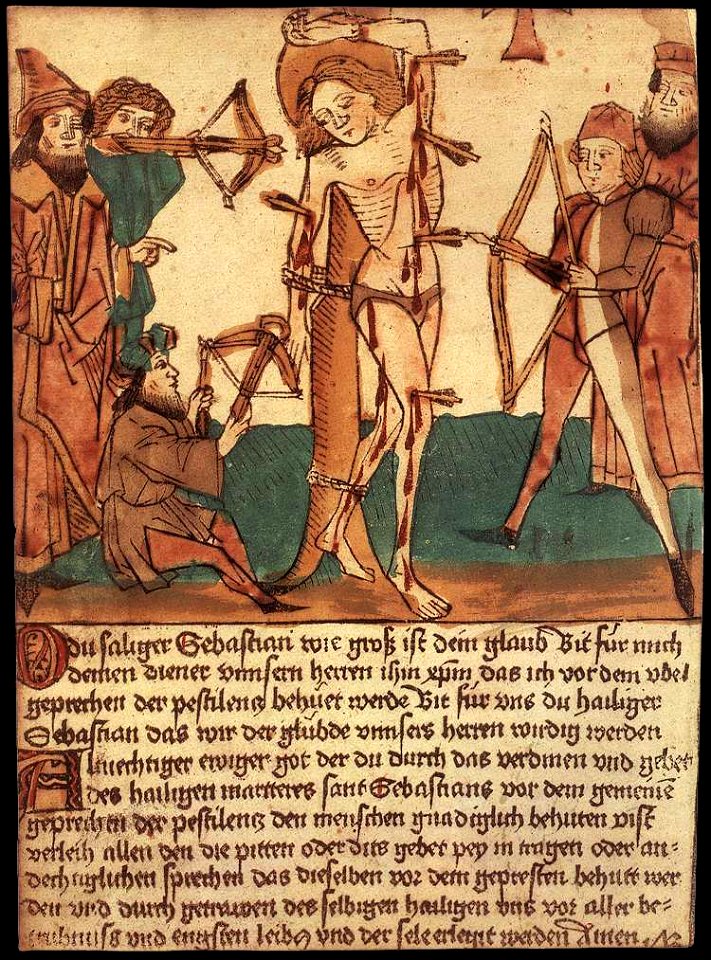 O du säliger Sebastian wie groß ist dein glaub Bit für mich
deinen diener vnnsern herren ihm xpm das ich vor dem vbel
geprechen der pestilencz behüet werde Bit für vns du hailiger
Sebastian das wir der glübde vnnsers herren wirdig werden
Almechtiger ewiger got der du durch das verdinen vnd gebet
des hailigen martreres sant Sebastians vor dem gemeinē
geprechen der pestilencz den menschen gnadiglich behüten pist
verleih allen den die pitten oder dits gebet pey in tragen oder an=
dechtiglichen sprechen das dieselben vor dem gepresten behütt wer
den vnd durch getrawen des selbigen hailigen vns vor aller be=
trubnuss vnd engsten leibs vnd der sele erlezt werden Amen